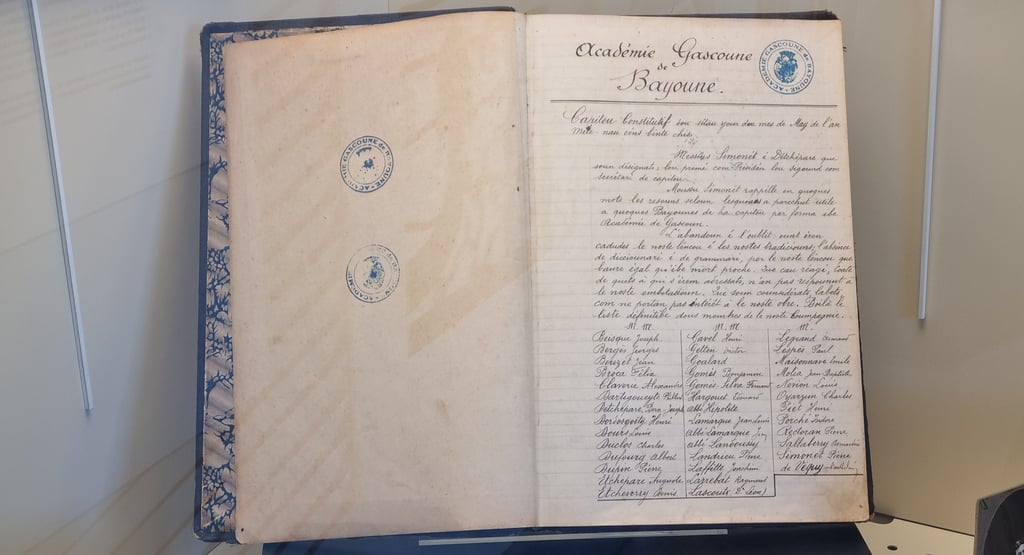 ACADÉMIE GASCOUNE de BAYOUNE
ACADÉMIE GASCOUNE de BAYOUNE
Académie Gascoune
de
Bayoune.
ACADÉMIE GASCOUNE de BAYOUNE
Capitou Constitutif dou seu jour dou mes de May de l'an
Mile nau cens binte chis.
Messius Simonet i Détchépare que
soun désignats, lou prumé com Présiden lou ségound com
secrétari de capitou.
Moussu Simonet rappelle en quoques
mots les resouns seloun lesquoas a parechut utile
a quoques Bayounes de ha capitou per forma ibe
Académie de Gascoun.
L'abandoun i l'oublit ount èren
cadudes le noste lencou i les nostes tradiciouns; l'absence
de dicciounari i de grammari, per le noste lencou que
baure égal qu'ibe mort proche. Que cau réagi, l'oate
de quets à qui s'èrem adressats, n'an pas respounut à
le noste embitacioun. Que soum counsiderats labets,
com ne portan pas entérêt à le noste obre. Boilà le
liste définitibe dous membres de le noste Coumpagnie.
M.M. M.M. M.
Beisque Joseph Gavel Henri Légrand Armand
Berges Georges Gelten Victor Lespès Paul
Bouzet Jean Goalard Maisonnave Emile
Broca Félix Gomès Benjamin Molia Jean Baptiste
Claverie Alexandre Gomès Silva Fernand Novion Louis
Dartigueyte Hargouet Edouard Oyarzun Charles
Detchépare Joseph Abbé Hipolite Piet Henri
Henri Lamarque Jean Louis Porché Isidore
Bours Louis Abbé Lamarque Rectoran Pierre
Duclos Charles Abbé Salleberry
Dufourg Albert Landrieu Pierre Simonet Pierre
Dupin Pierre Laffitte Joachim de Véguy
Etchepare Auguste Larrebat Raymond
Etcheverry Denis Lascouts Dr Léon